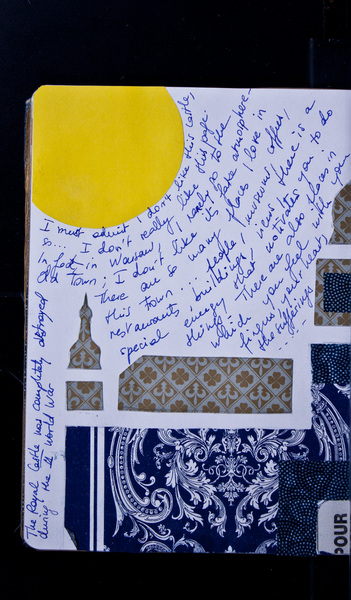 I must admit, I don't like this castle,
so... I don't really like this page.
In fact, in Warsaw, I rarely go to the
Old Town; I don't like its fake atmosphere.
There are so many places I love in
this town... people, offer,
restaurants, buildings, views, there is a
special energy that motivates you to do
things. There are also places in
which you feel
your heart when you
the suffering...
The Royal Castle was completely destroyed
during the II World War
POUR